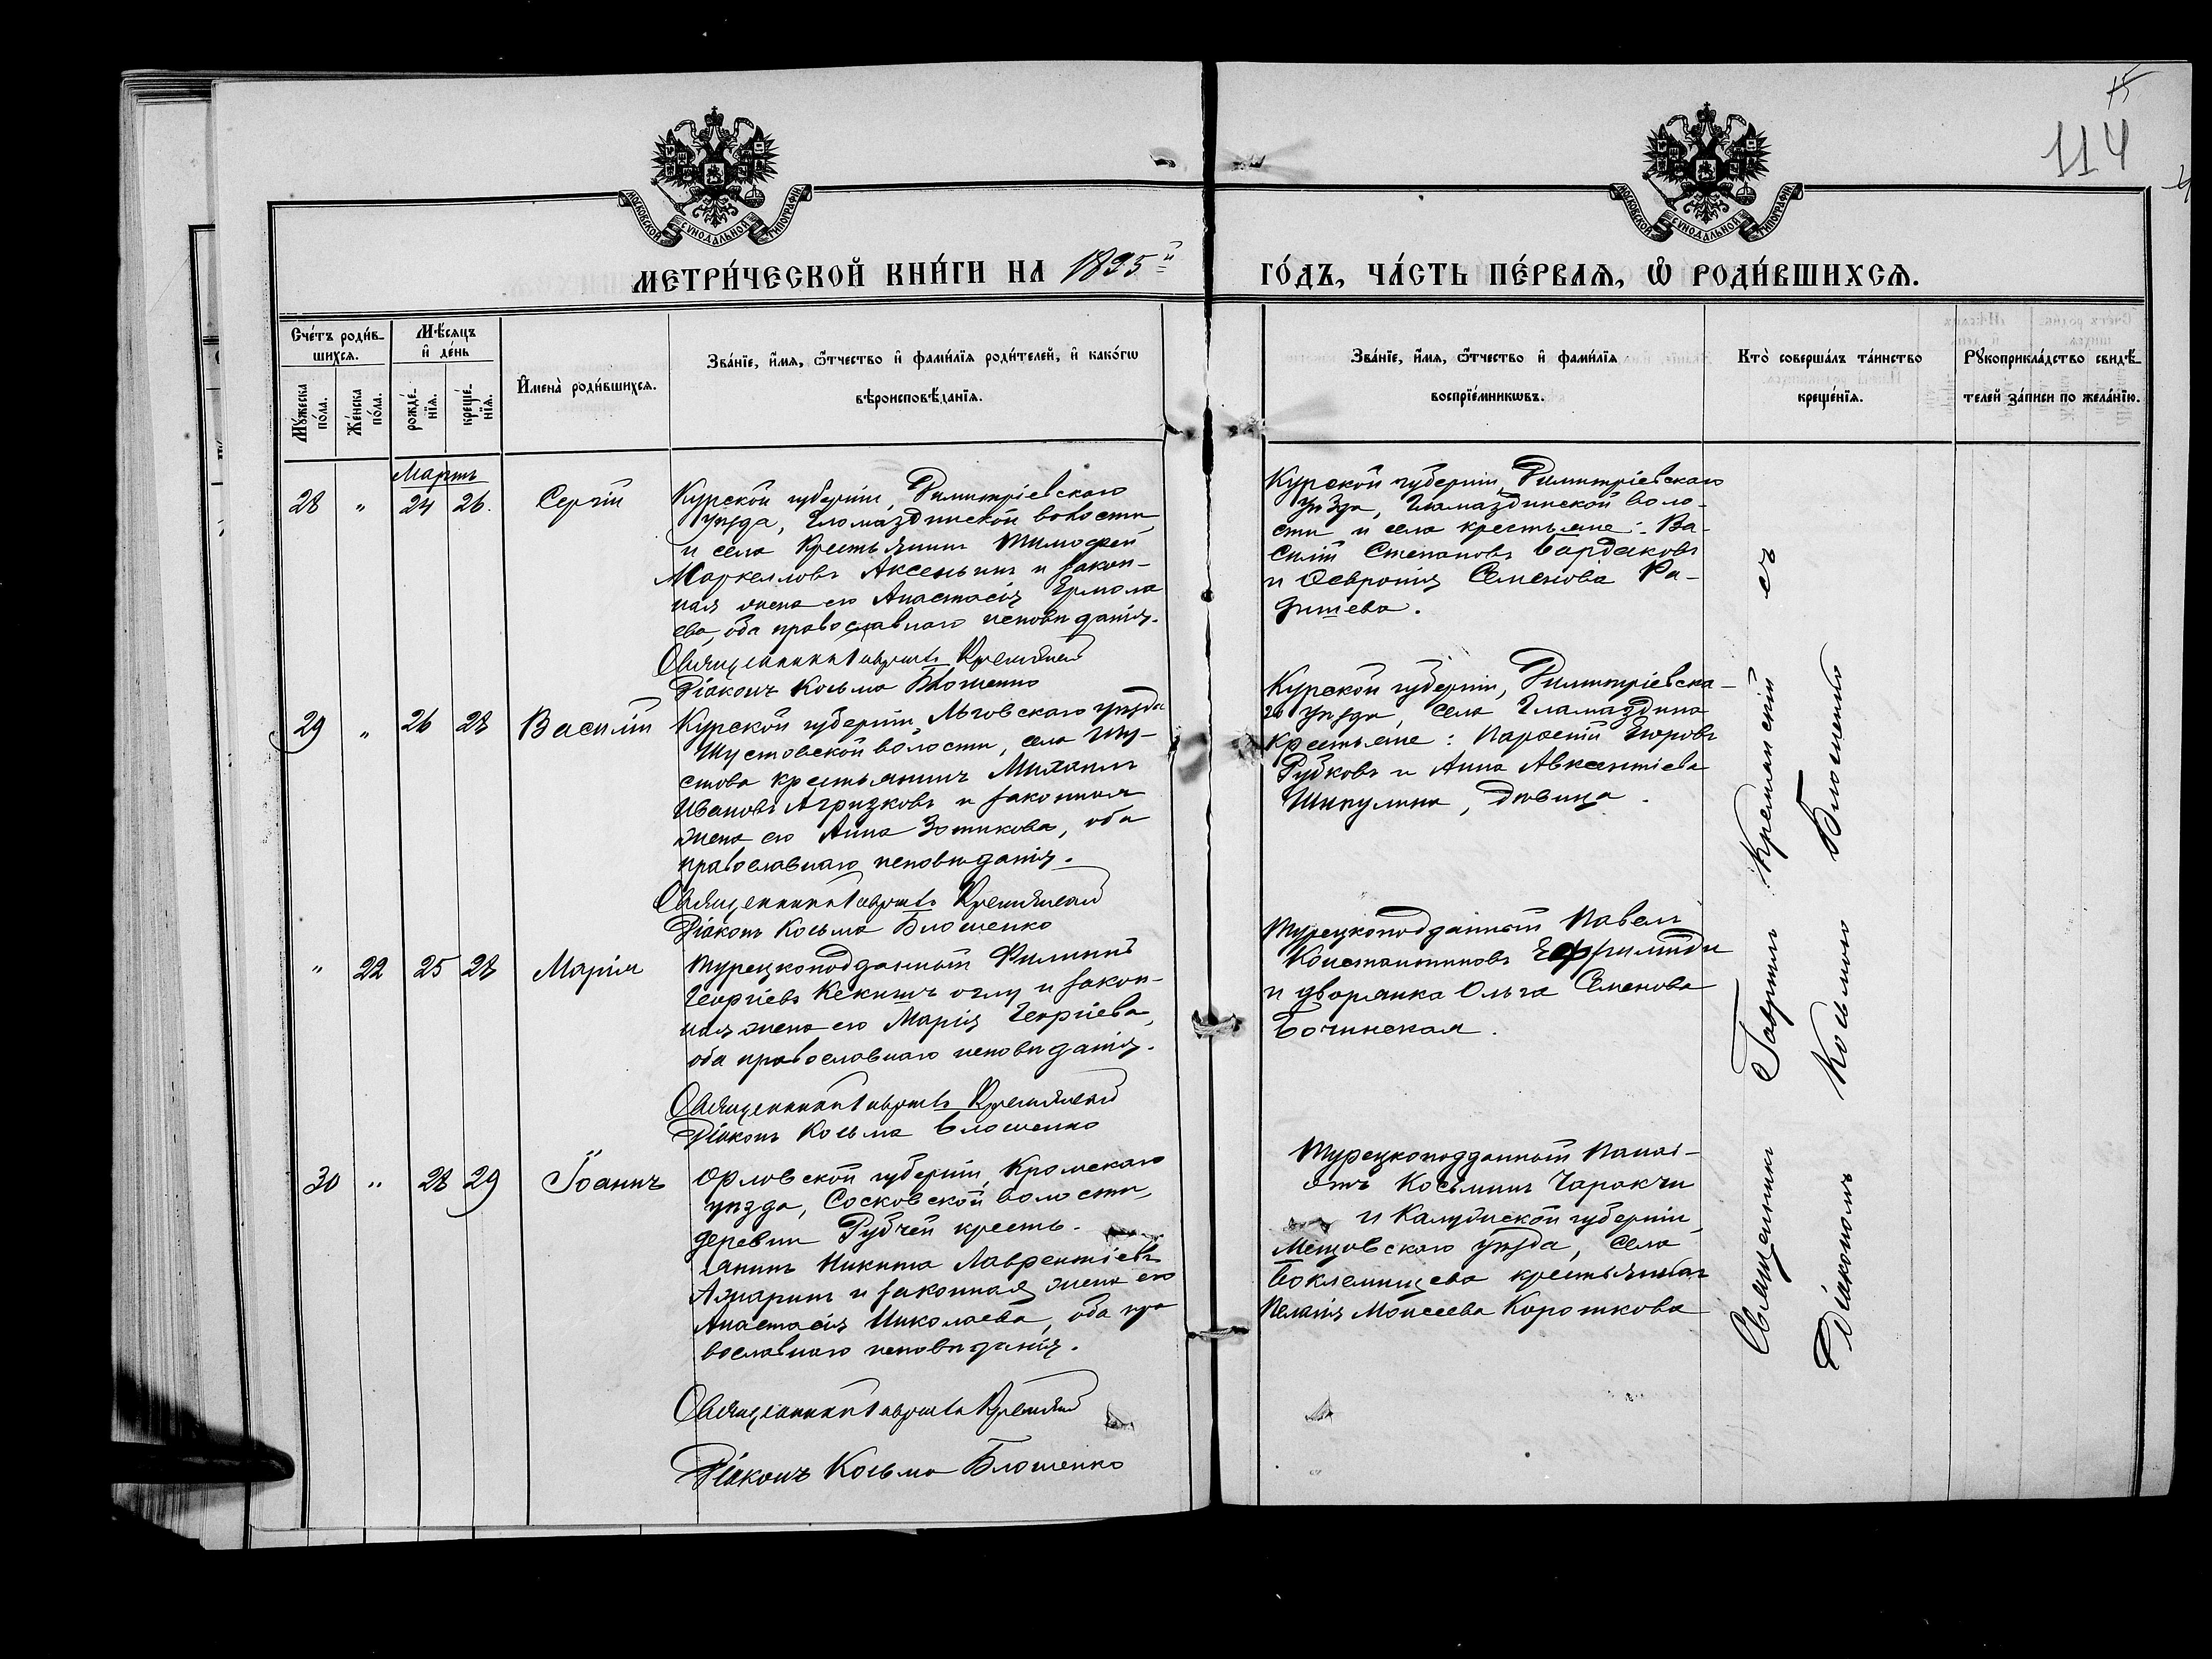 15
114
МОСКОВСКОЙ СѴНОДАЛЬНОЙ ТИПОГРАФІИ
МОСКОВСКОЙ СѴНОДАЛЬНОЙ ТИПОГРАФІИ
МЕТРИ́ЧЕСКОЙ КНИ́ГИ НА 1895й
ГО́ДЪ, ЧА́СТЬ ПЕ́РВАѦ, Ѡ҆ РОДИ́ВШИХСѦ.
Сче́тъ роди́в-
шихсѧ.
Мꙋ́жеска по́ла.
Же́нска по́ла.
Мѣ́сѧцъ
и҆ де́нь
рожде́-
нїѧ.
креще́-
нїѧ.
И҆мена̀ роди́вшихсѧ.
Зва́нїе, и҆́мѧ, ѻ҆́тчество и҆ фами́лїѧ роди́телей, и҆ како́гѡ
вѣроисповѣ́данїѧ.
Зва́нїе, и҆́мѧ, ѻ҆́тчество и҆ фами́лїѧ
воспрїе́мникѡвъ.
Кто̀ соверша́лъ та́инство
креще́нїѧ.
Рꙋкоприкла́дство свидѣ́-
телей за́писи по жела́нїю.
Мартъ
28 " 24 26. Сергій
Курской губерніи, Димитріевскаго
уѣзда, Гломаздинской волости
и села крестьянинъ Тимофей
Маркелловъ Аксеньинъ и закон-
ная жена его Анастасія Ермола
ева, оба православнаго исповѣданія.
Священникъ Гавріилъ Кремлянскій
Діаконъ Косьма Блошенко
Курской губерніи, Димитріевскаго
уѣзда, Гламаздинской воло-
сти и села крестьяне: Ва-
силій Степановъ Бардаковъ
и Февронія Семенова Ра-
дишева.
29 " 26 28 Василій
Курской губерніи Льговскаго уѣзда
Шустовской волости, села Шу-
стова крестьянинъ Михаилъ
Ивановъ Агризковъ и законная
жена его Анна Зотикова, оба
православнаго исповѣданія.
Священникъ Гавріилъ Кремлянскій
Діаконъ Косьма Блошенко
Курской губерніи, Димитріевска-
го уѣзда, села Гламаздина
крестьяне: Егоровъ
Рудковъ и Анна Авксентіева
Шикулина, дѣвица.
" 22 25 28 Марія
Турецкоподданный Филиппъ
Георгіевъ оглу и закон-
ная жена его Марія Георгіева,
оба православнаго исповѣданія.
Священникъ Гавріилъ Кремлянскій
Діаконъ Косьма Блошенко
Турецкоподданный Павелъ
Константиновъ Ефримиди
и дворянка Ольга Семенова
Бочинская.
30 " 28 29 Іоаннъ
Орловской губерніи, Кромскаго
уѣзда, Сосковской волости,
деревни Рубчей кресть-
янинъ Никита Лаврентіевъ
и законная жена его
Анастасія Николаева, оба пра
вославнаго исповѣданія.
Священникъ Гавріилъ Кремлянскій
Діаконъ Косьма Блошенко
Турецкоподданный Панаі-
отъ Косьминъ Чаракчи
и Калужской губерніи
Мещовскаго уѣзда, села
крестьянка
Пелагія Моисеева Короткова
Священникъ Гавріилъ Кремлянскій съ
Діакономъ Косьмою Блошенко